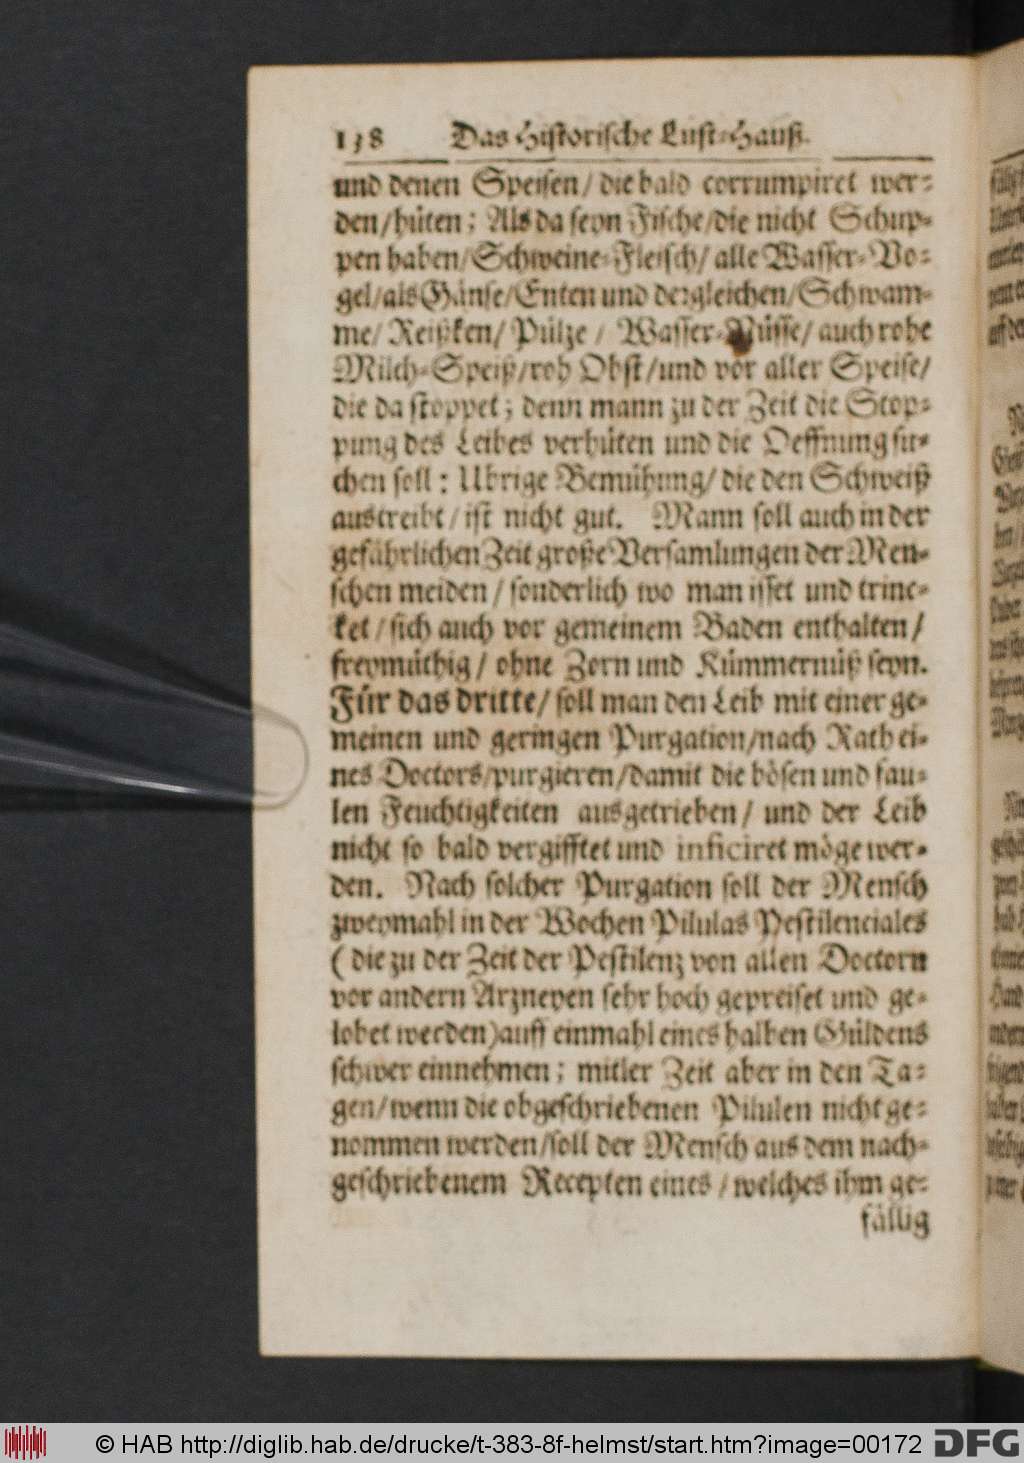 138 Das Historische Lust-Hauß.
und denen Speisen/ die bald corrumpiret wer-
den/hüten; Als da seyn Fische/die nicht Schup-
pen haben/Schweine-Fleisch/ alle Wasser-Vö-
gel/als Gänse/Enten und dergleichen/Schwam-
me/ Reißken/ Pültze/ Wasser-Nüsse/ auch rohe
Milch-Speiß/roh Obst/und vor aller Speise/
die da stoppet; denn mann zu der Zeit die Stop-
pung des Leibes verhüten und die Oeffnung su-
chen soll: Ubrige Bemühung/ die den Schweiß
austreibt/ ist nicht gut. Mann soll auch in der
gefährlichen Zeit große Versamlungen der Men-
schen meiden/ sonderlich wo man isset und trinc-
ket/ sich auch vor gemeinem Baden enthalten/
freymüthig/ ohne Zorn und Kümmernüß seyn.
Für das dritte/ soll man den Leib mit einer ge-
meinen und geringen Purgation/nach Rath ei-
nes Doctors/purgieren/damit die bösen und fau-
len Feuchtigkeiten ausgetrieben/ und der Leib
nicht so bald vergifftet und inficiret möge wer-
den. Nach solcher Purgation soll der Mensch
zweymahl in der Wochen Pilulas Pestilenciales
(die zu der Zeit der Pestilenz von allen Doctorn
vor andern Arzneyen sehr hoch gepreiset und ge-
lobet werden)auff einmahl eines halben Güldens
schwer einnehmen; mitler Zeit aber in den Ta-
gen/wenn die obgeschriebenen Pilulen nicht ge-
nommen werden/soll der Mensch aus dem nach-
geschriebenem Recepten eines/welches ihm ge-
fällig
© HAB http://diglib.hab.de/drucke/t-383-8f-helmst/start.htm?image=00172 DFG